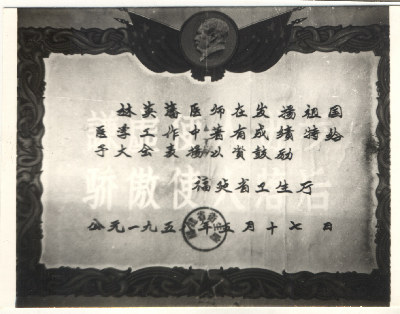 林英藩医师在发扬祖国
医学工作中著有成绩特给
予大会表扬以资鼓励
福建省卫生厅
公元一九五 年五月十七日
骄傲使人落后